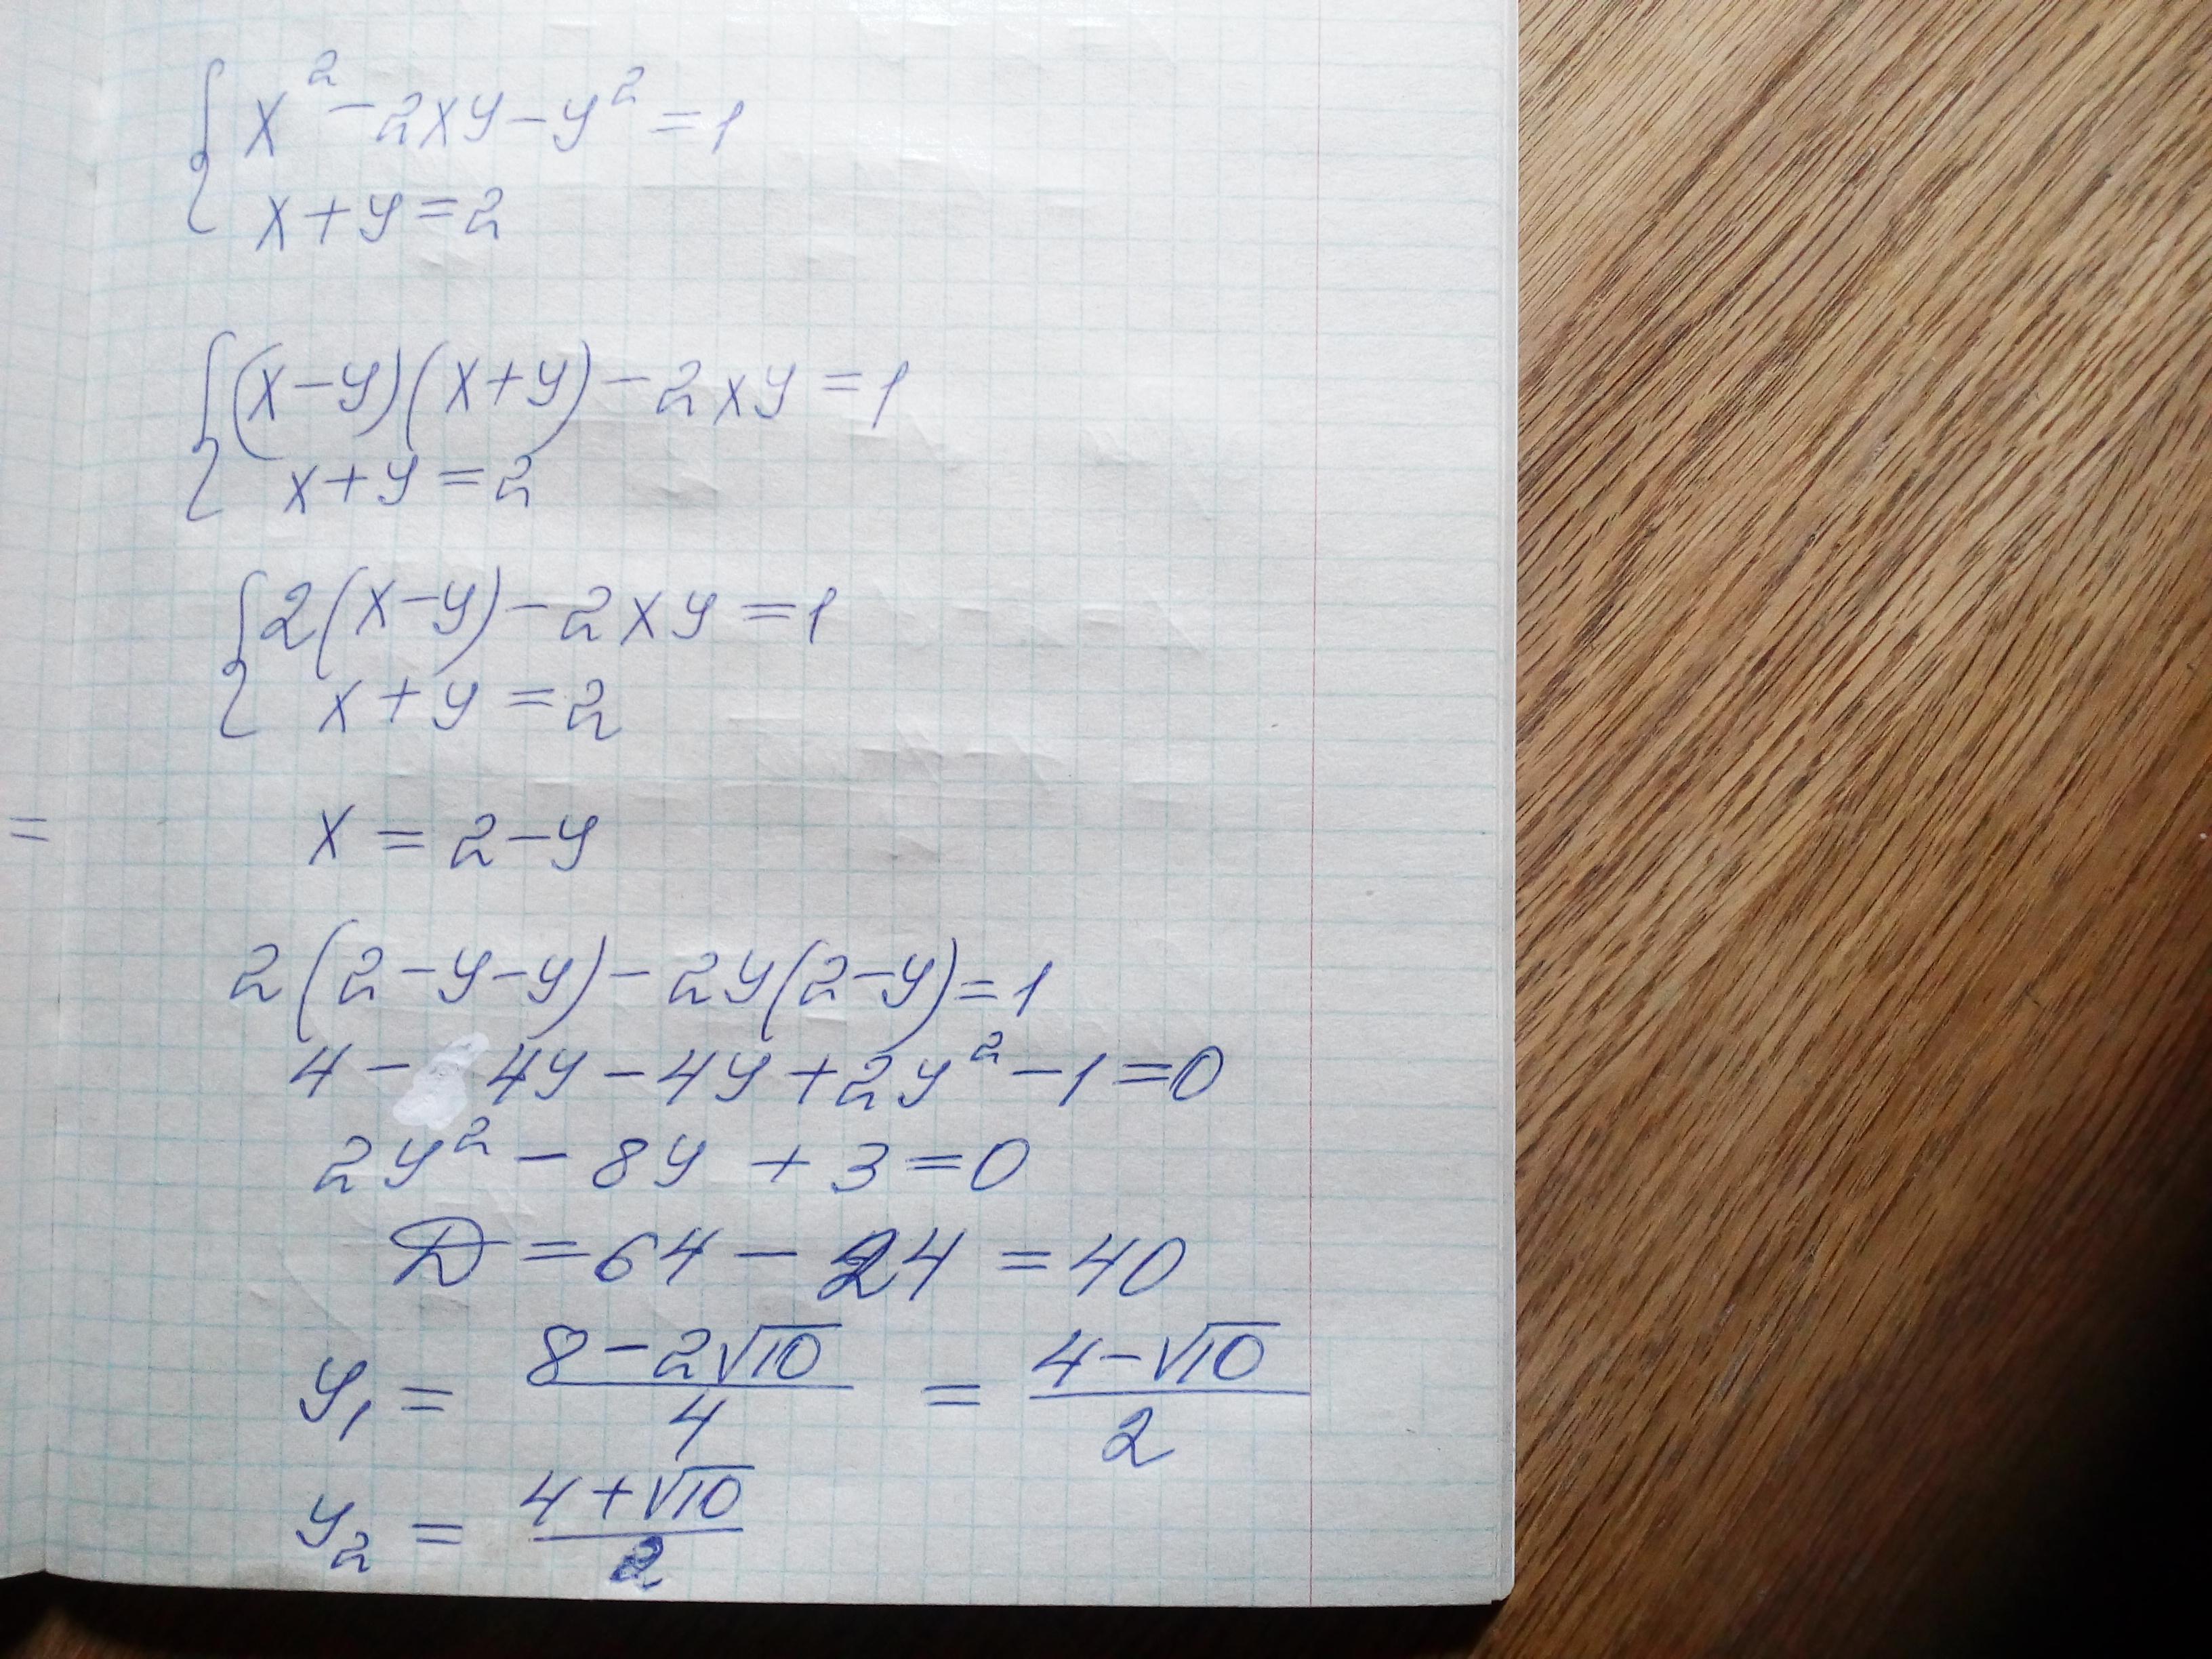 { x² - 2xy - y² = 1
x + y = 2
{ (x - y)(x + y) - 2xy = 1
x + y = 2
{ 2(x - y) - 2xy = 1
x + y = 2
=
x = 2 - y
2(2 - y - y) - 2y(2 - y) = 1
4 - 4y - 4y + 2y² - 1 = 0
2y² - 8y + 3 = 0
D = 64 - 24 = 40
y₁ = (8 - 2√10)/4 = (4 - √10)/2
y₂ = (4 + √10)/2